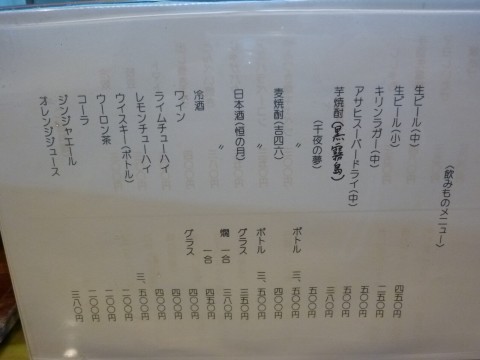 (飲みものメニュー)
生ビール(中) 四五〇円
生ビール(小) 二五〇円
キリンラガー(中) 五〇〇円
アサヒスーパードライ(中) 五〇〇円
芋焼酎(黒霧島) 三八〇円
(千夜の夢) 五〇〇円
〃 ボトル 三、五〇〇円
麦焼酎(吉四六) 四〇〇円
〃 ボトル 三、五〇〇円
日本酒(恒の月) グラス 三五〇円
〃 燗 一合 三八〇円
冷酒 一合 四五〇円
ワイン グラス 四〇〇円
ライムチューハイ 四〇〇円
レモンチューハイ 四〇〇円
ウイスキー(ボトル) 三、五〇〇円
ウーロン茶 二〇〇円
コーラ 二〇〇円
ジンジャエール 二〇〇円
オレンジジュース 三八〇円